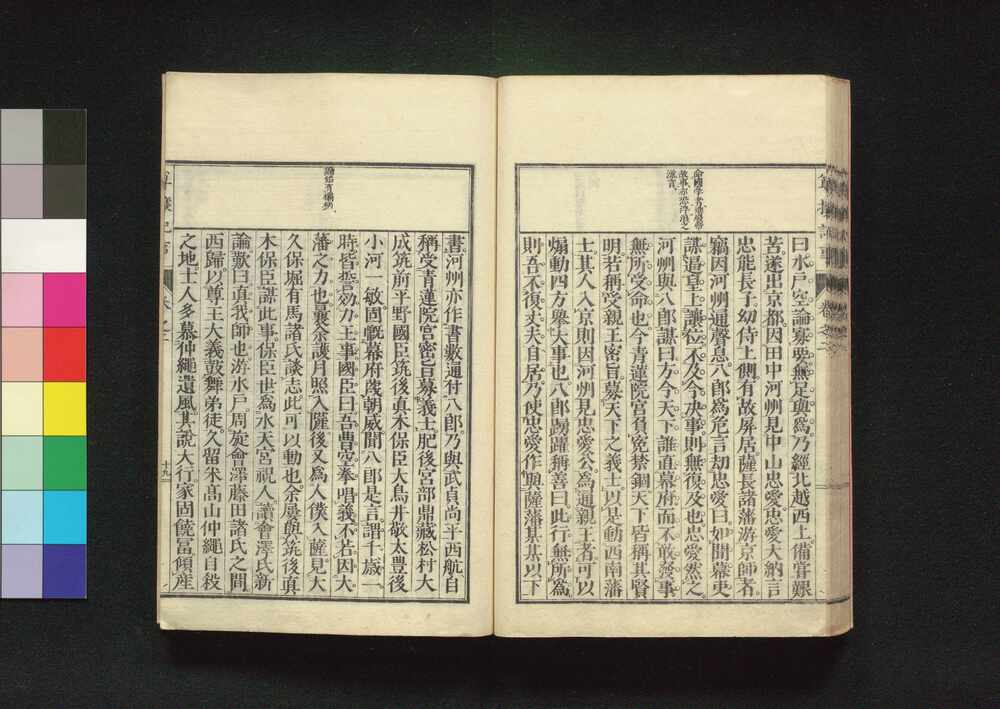 命國学者、廢帝
故事、亦恐浮浪之
誣言、
曰水戶空論寡要無足與爲乃經北越西上備甞艱
苦遂出京都因田中河州見中山忠愛忠愛大納言
忠能長子幼侍上側有故屏居薩長諸藩游京師者
竊因河州通聲息八郎爲危言劫忠愛曰如聞幕吏
謀逼皇上讓位不及今決事則無復及也忠愛然之
河州與八郎謀曰方今天下誰直幕府而不敢發事
無所受命也今青蓮院宮負冤禁錮天下皆稱其賢
明若稱受親王密旨募天下之義士以足動西南藩
士其人入京則因河州見忠愛公爲通親王者可以
煽動四方舉大事也八郎踴躍稱善曰此行無所爲
則吾不復丈夫自居乃使忠愛作與薩藩某某以下
書河州亦作書數通付八郎乃與武貞尚平西航自
稱受青蓮院宮密旨募義士肥後宮部鼎藏松村大
成筑前平野國臣筑後真木保臣大鳥井敬太豊後
小河一敏固慨幕府蔑朝威聞八郎是言謂千歲一
時皆誓効力王事國臣曰吾曹空奉唱義不若因大
藩之力也曩余護月照入薩後又爲人僕入薩見大
久保堀有馬諸氏談志此可以動也余屢與筑後真
木保臣謀此事保臣世爲水天宮祝人讀會澤氏新
論歎曰真我師也游水戶周旋會澤藤田諸氏之間
西歸以尊王大義鼓舞弟徒久留米髙山仲繩自殺
之地士人多慕仲繩遺風其說大行家固饒冨傾産
卷之二
十九